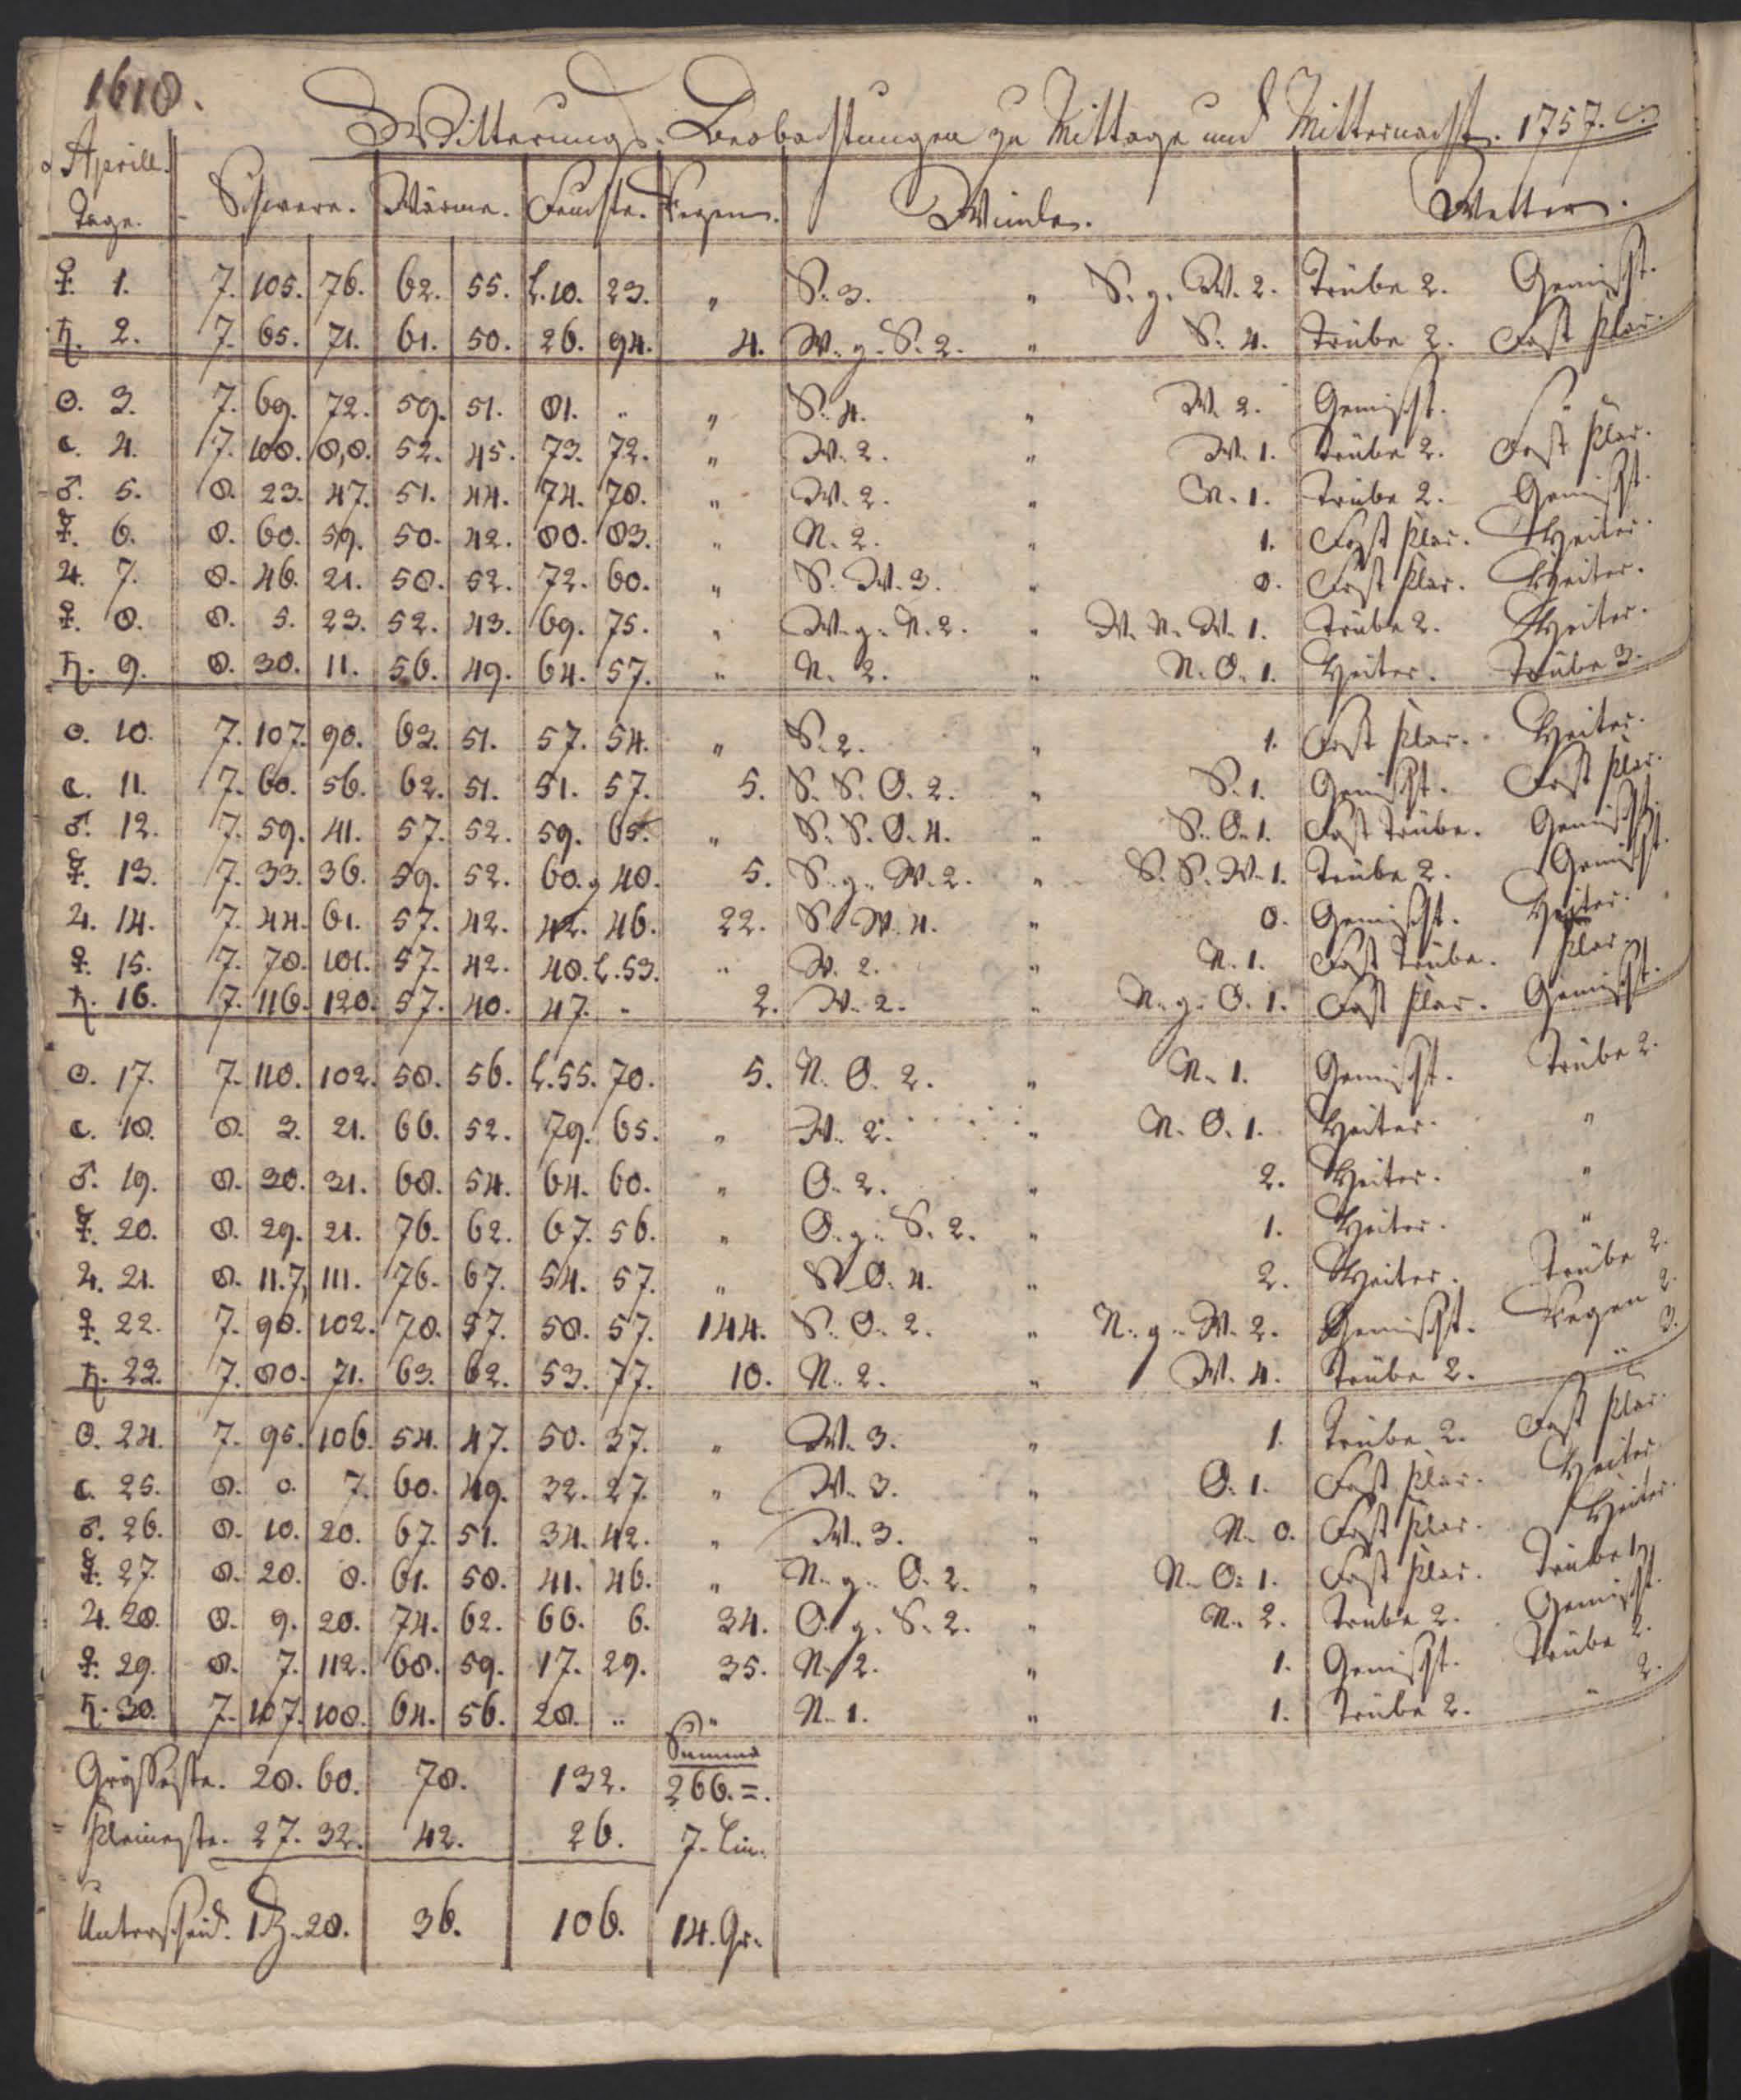 1618.
Witterungs-Beobachtungen zu Mittage und Mitternacht. 1757.
Aprill. Tage. Schwere. Wärme. Feuchte. Regen. Winde. Wetter.
♀. 1. 7. 105. 76. 62. 55. L. 10. 23. „ S. 3. „ S. g. W. 2. Trübe 2. Gemischt.
♄. 2. 7. 65. 71. 61. 50. 26. 94. 4. W. g. S. 2. „ S. 4. Trübe 2. Fast klar.
☉. 3. 7. 69. 72. 59. 51. 81. „ „ S. 4. „ W. 2. Gemischt. „
☾. 4. 7. 108. 8,8. 52. 45. 73. 72. „ W. 2. „ W. 1. Trübe 2. Fast klar.
♂. 5. 8. 23. 47. 51. 44. 74. 78. „ W. 2. „ N. 1. Trübe 2. Gemischt.
☿. 6. 8. 60. 59. 50. 42. 80. 83. „ N. 2. „ 1. Fast klar. Heiter.
♃. 7. 8. 46. 21. 58. 52. 72. 60. „ S. W. 3. „ 0. Fast klar. Heiter.
♀. 8. 8. 5. 23. 52. 43. 69. 75. „ W. g. N. 2. „ W. N. W. 1. Trübe 2. Heiter.
♄. 9. 8. 30. 11. 56. 49. 64. 57. „ N. 2. „ N. O. 1. Heiter. Trübe 3.
☉. 10. 7. 107. 90. 63. 51. 57. 54. „ S. 2. „ 1. Fast klar. Heiter.
☾. 11. 7. 60. 56. 62. 51. 51. 57. 5. S. S. O. 2. „ S. 1. Gemischt. Fast klar.
♂. 12. 7. 59. 41. 57. 52. 59. 65. „ S. S. O. 4. „ S. O. 1. Fast Trübe. Gemischt.
☿. 13. 7. 33. 36. 59. 52. 60. 40. 5. S. g. W. 2. „ S. S. W. 1. Trübe 2. Gemischt.
♃. 14. 7. 44. 61. 57. 42. 42. 46. 22. S. W. 4. „ 0. Gemischt. Heiter.
♀. 15. 7. 78. 101. 57. 42. 48. L. 53. „ W. 2. „ N. 1. Fast Trübe. klar.
♄. 16. 7. 116. 120. 57. 40. 47. „ 2. W. 2. „ N. g. O. 1. Fast klar. Gemischt.
☉. 17. 7. 110. 102. 58. 56. L. 55. 70. 5. N. O. 2. „ N. 1. Gemischt. Trübe 2.
☾. 18. 8. 3. 21. 66. 52. 79. 65. „ W. 2. „ N. O. 1. Heiter. „
♂. 19. 8. 30. 31. 68. 54. 64. 60. „ O. 2. „ 2. Heiter. „
☿. 20. 8. 29. 21. 76. 62. 67. 56. „ O. g. S. 2. „ 1. Heiter. „
♃. 21. 8. 11.7, 111. 76. 67. 54. 57. „ S. O. 4. „ 2. Heiter. Trübe 2.
♀. 22. 7. 98. 102. 78. 57. 58. 57. 144. S. O. 2. „ N. g. W. 2. Gemischt. Regen 2.
♄. 23. 7. 80. 71. 63. 62. 53. 77. 10. N. 2. „ W. 4. Trübe 2. „ 3.
☉. 24. 7. 95. 106. 54. 47. 50. 37. „ W. 3. „ 1. Trübe 2. Fast klar.
☾. 25. 8. 0. 7. 60. 49. 32. 27. „ W. 3. „ O. 1. Fast klar. Heiter.
♂. 26. 8. 10. 20. 67. 51. 34. 42. „ W. 3. „ N. 0. Fast klar. Heiter.
☿. 27. 8. 20. 8. 61. 58. 41. 46. „ N. g. O. 2. „ N. O. 1. Fast klar. Trübe 1.
♃. 28. 8. 9. 20. 74. 62. 66. 6. 34. O. g. S. 2. „ N. 2. Trübe 2. Gemischt.
♀. 29. 8. 7. 112. 68. 59. 17. 29. 35. N. 2. „ 1. Gemischt. Trübe 2.
♄. 30. 7. 107. 108. 64. 56. 28. „ „ N. 1. „ 1. Trübe 2. „ 2.
Summa
Grösseste. 28. 60. 78. 132. 266. =.
Kleineste. 27. 32. 42. 26. 7. Lin.
Unterscheid. 1 Z. 28. 36. 106. 14. Gr.